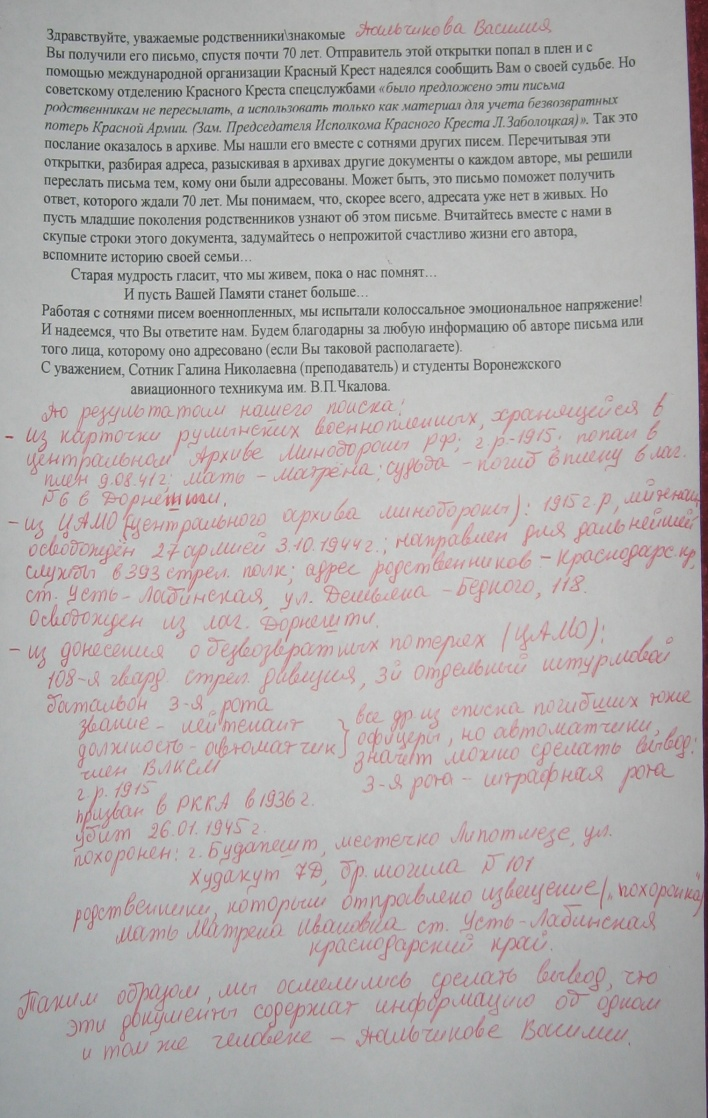 Здравствуйте, уважаемые родственники\знакомые Пальчикова Василия
Вы получили его письмо, спустя почти 70 лет. Отправитель этой открытки попал в плен и с
помощью международной организации Красный Крест надеялся сообщить Вам о своей судьбе. Но
советскому отделению Красного Креста спецслужбами «было предложено эти письма
родственникам не пересылать, а использовать только как материал для учета безвозвратных
потерь Красной Армии. (Зам. Председателя Исполкома Красного Креста Л.Заболоцкая)». Так это
послание оказалось в архиве. Мы нашли его вместе с сотнями других писем. Перечитывая эти
открытки, разбирая адреса, разыскивая в архивах другие документы о каждом авторе, мы решили
переслать письма тем, кому они были адресованы. Может быть, это письмо поможет получить
ответ, которого ждали 70 лет. Мы понимаем, что, скорее всего, адресата уже нет в живых. Но
пусть младшие поколения родственников узнают об этом письме. Вчитайтесь вместе с нами в
скупые строки этого документа, задумайтесь о непрожитой счастливо жизни его автора,
вспомните историю своей семьи…
Старая мудрость гласит, что мы живем, пока о нас помнят…
И пусть Вашей Памяти станет больше…
Работая с сотнями писем военнопленных, мы испытали колоссальное эмоциональное напряжение!
И надеемся, что Вы ответите нам. Будем благодарны за любую информацию об авторе письма или
того лица, которому оно адресовано (если Вы таковой располагаете).
С уважением, Сотник Галина Николаевна (преподаватель) и студенты Воронежского
авиационного техникума им. В.П.Чкалова.
По результатам нашего поиска:
- из карточки румынских военнопленных, хранящейся в
центральном Архиве Минобороны РФ; г.р.-1915; попал в
плен 9.08.41г; мать - Матрёна; судьба - погиб в плену в лаг.
№6 в Дорнештии.
- из ЦАМО (центрального архива минобороны): 1915 г.р, лейтенант
освобождён 27 армией 3.10.1944г.; направлен для дальнейшей
службы в 393 стрел. полк; адрес родственников - Краснодарс. кр,
ст. Усть-Лабинская, ул. Демьяна-Бедного, 118.
Освобожден из лаг. Дорнешти.
- из донесения о безвозвратных потерях (ЦАМО):
108-я гвард. стрел. дивизия, 3й отдельный штурмовой
батальон 3-я рота
звание - лейтенант
должность - автоматчик
член ВЛКСМ
г.р. 1915
все др. из списка погибших тоже
офицеры, но автоматчики,
значит можно сделать вывод:
3-я рота - штрафная рота
призван в РККА в 1936г.
убит 26.01.1945г.
похоронен: г. Будапешт, местечко Липотмезе, ул.
Худакут 7Д, бр. могила №101
родственники, которым отправлено извещение („похоронка“)
мать Матрена Ивановна ст. Усть-Лабинская
Краснодарский край.
Таким образом, мы осмелились сделать вывод, что
эти документы содержат информацию об одном
и том же человеке - Пальчикове Василии.